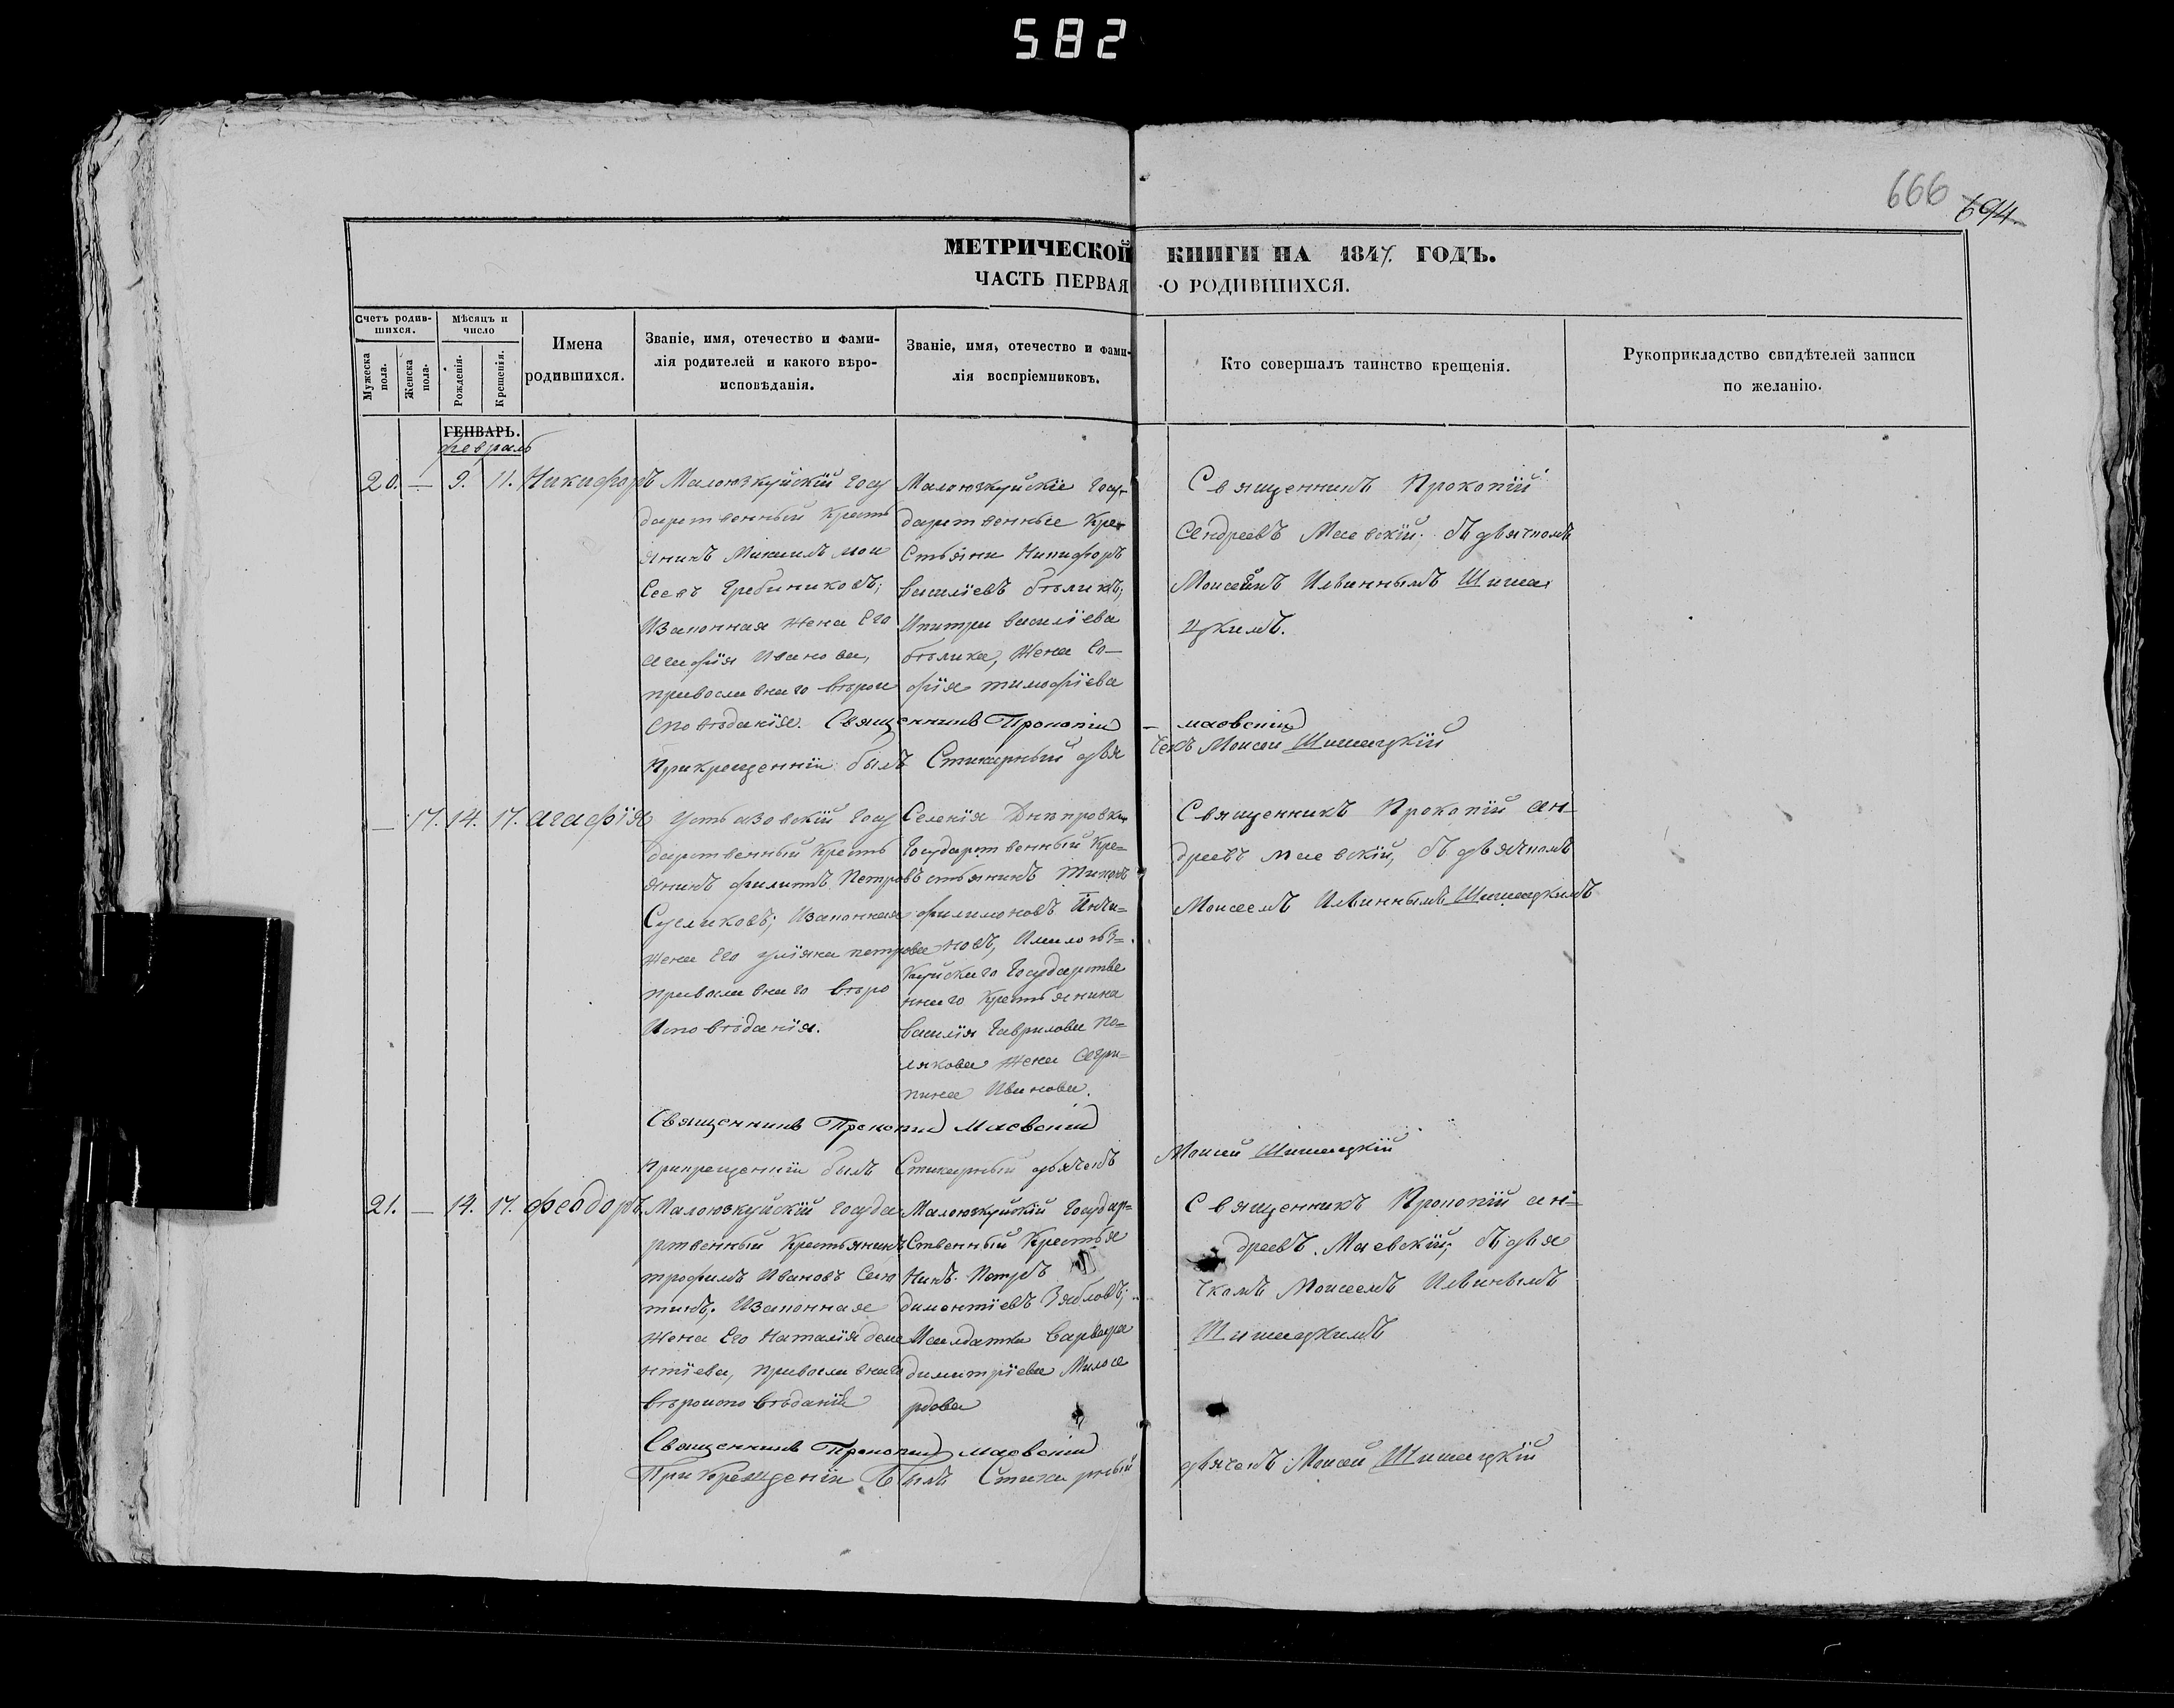 582
666
694.
МЕТРИЧЕСКОЙ КНИГИ НА 1847. ГОДЪ.
ЧАСТЬ ПЕРВАЯ О РОДИВШИХСЯ.
Счетъ родив-
шихся.
Мужеска
пола.
Женска
пола.
Мѣсяцъ и
число
Рожденія.
Крещенія.
Имена
родившихся.
Званіе, имя, отечество и фами-
лія родителей и какого вѣро-
исповѣданія.
Званіе, имя, отечество и фами-
лія воспріемниковъ.
Кто совершалъ таинство крещенія.
Рукоприкладство свидѣтелей записи
по желанію.
ГЕНВАРЬ.
февраль
20. — 9. 11. Никифоръ
Малоюзкуйскій Госу
дарственный Кресть
янинъ Михаилъ мои
сеевъ Гребиниковъ;
Изаконная жена Его
Агафія Иванова,
православнаго вѣрои
споведанія.
Малоюзкуйскіе Госу-
дарственные Кре-
стьяни Никифоръ
василіевъ бѣликъ,
василіева
бѣлика, Жена Со-
фія тимофіева
Священникъ Прокопій
Андреевъ Маевскій; съ дьячкомъ
Моисеемъ Илвинымъ Шиша
цкимъ.
Священникъ Прокопій — маевскій
Прикрещеніи былъ Стихарный дья чокъ Моисей Шишацкій
— 17. 14. 17. агафія
Устьазовскій Госу
дарственный Кресть
янинъ филипъ Петровъ
Сусликовъ; Изаконная
жена Его уліяна петрова
православнаго вѣро
исповѣданія.
Селенія Днѣпровки
Государственный Кре=
стьянинъ
филимоновъ
новъ, Имало юз=
куйскаго Государстве
ннаго Крестьянина
василія Гаврилова по=
лякова жена Агри=
пина Иванова.
Священникъ Прокопій ан-
дреевъ маевскій, съ дьячкомъ
Моисеемъ Илвинымъ Шишацкимъ
Священникъ Прокопій Маевскій
Прикрещеніи былъ Стихарный дьячокъ Моисей Шишацкій
21. — 14. 17. феодоръ
Малоюзкуйскій Госуда
рственный Крестьянинъ
трофимъ Ивановъ Сею
тинъ. Изаконная
жена Его Наталія деме
нтіева, православнаго
вѣроисповѣданія
Малоюзкуйскій Государ=
ственный Крестья
нинъ Петръ
диментіевъ Зябловъ;
Исалдатка Варвара
димитріева Милосе
рдова
Священникъ Прокопій ан=
дреевъ Маевскій; съ дья
чкомъ Моисеемъ Илвинымъ
Шишацкимъ
Священникъ Прокопій маевскій
При Крещеніи Былъ Стихарный дьячокъ Моисей Шишацкій